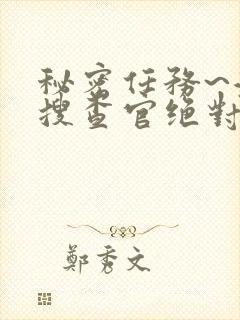 秘密任務~
搜查官绝對
鄭秀文